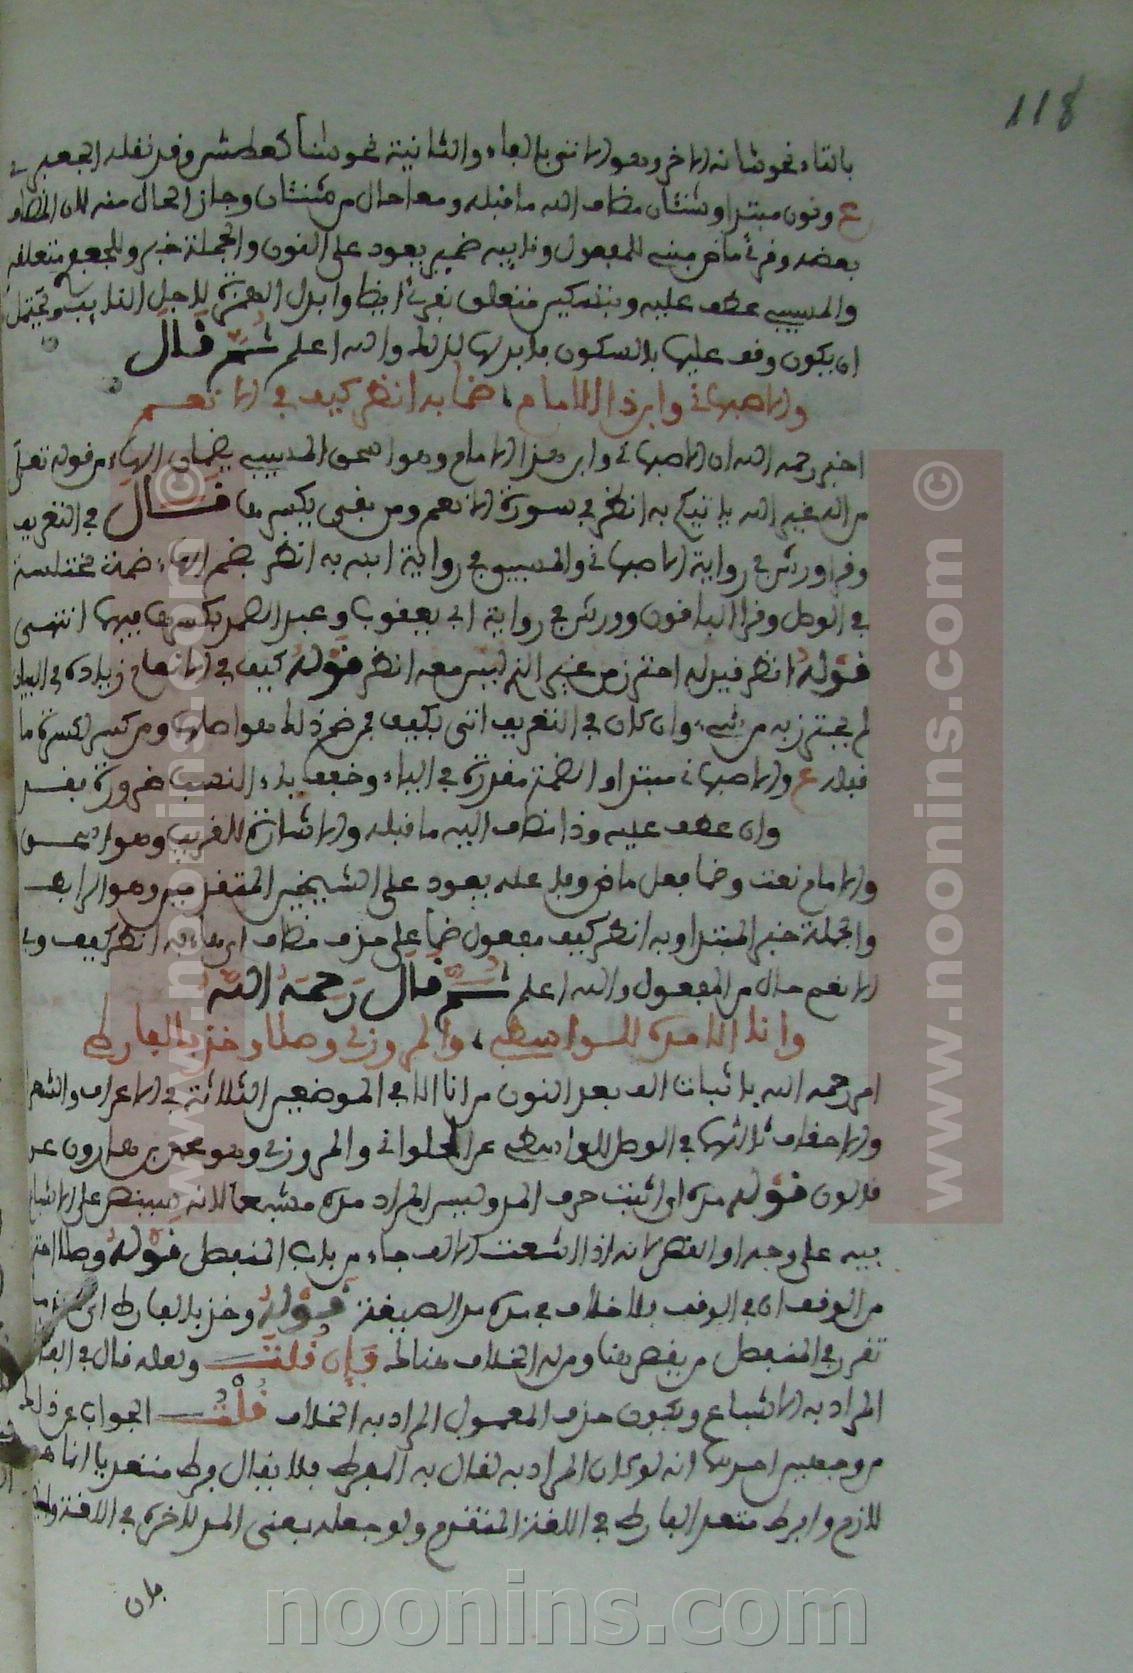 118
بالتاء نحو شانه الاخر وهو الانثى بالهاء والثانية نحو شنئا كعطش وقد نقله الجعبري
ع ونون مبتدا وشنئان مضاف اليه ما قبله ومعا حال من شنئان وجاز الحال منه لان المضاف
بعضه وقرئ ماض مبني للمفعول ونايبه ضمير يعود على النون والجملة خبر وللجميع متعلقه
والمسيبي عطف عليه وبتسكين متعلق بقرئ ايضا وابدل الهمزة لاجل القافية ويحتمل
ان يكون وقف عليها بالسكون فابدلها لذلك والله اعلم ثم قال
والاصبهاني وابن ذا الامام ضما به انظر كيف في الانعام
اخبر رحمه الله ان الاصبهاني وابن هذا الامام وهو اسحق المسيبي يضمان الهاء من قوله تعلى
من اله غير الله ياتيكم به انظر في سورة الانعم ومن بقي يكسرها قال في التعريف
وقرا ورش في رواية الاصبهاني والمسيبي في رواية ابنه به انظر بضم الهاء ضمة مختلسة
في الوصل وقرا الباقون وورش في رواية ابي يعقوب وعبد الصمد بكسرها فيها انتهى
قوله انظر قيد له احترز من غير الذي ليس معه انظر قوله كيف في الانعام زيادة في البيان
لم يحترز به من شيء وان كان في التعريف اتى بكيف فمن ضم ذلك فعلى اصلها ومن كسر لكسرة ما
قبله ع والاصبهاني مبتدا والضمة مقدرة في الياء وخفف ياء النسب ضرورة بقـ
وابن عطف عليه وذا مضاف اليه ما قبله والاشارة للقريب وهو اسحق
والامام نعت وضما فعل ماض وفاعله يعود على الشيخين المتقدمين وهو الرابط
والجملة خبر المبتدا وبه انظر كيف مفعول ضما على حذف مضاف اي هاء به انظر كيف وفي
الانعم حال من المفعول والله اعلم ثم قال رحمه الله
وانا الا مده للواسطي والمروزي وصلا وخذ بالفارط
امر رحمه الله باثبات الف بعد النون من انا الا في المواضع الثلاثة في الاعراف والشعرا
والاحقاف ثالثها في الوصل للواسطي عن الحلواني والمروزي وهو محمد بن هارون عن
قالون قوله مده اي اثبت حرف المد وليس المراد مده مشبعا لانه سينص على الاشباع
فيه على وجه او القصر لانه اذا اشبعت الالف جاء من باب المنفصل قوله وصلا احترز
من الوقف ان في الوقف بلا خلاف في مده هذه الصيغة قوله وخذ بالفارط اي
تقرر في المنفصل من يقصر هنا ومن له الخلاف هنالك فإن قلت ولعله قال في
المراد به الاشباع ويكون حذف المعمول المراد به الخلاف قلت الجواب عن ذلك
من وجهين احدهما انه لو كان المراد به لقال به المفرط فلا يقال فرط متعديا انما هو
للازم وافرط متعد الفارط في اللغة المتقدم ولو جعله بمعنى المد للاخرة في اللغة
بان
www.noonins.com ©
www.noonins.com ©
noonins.com